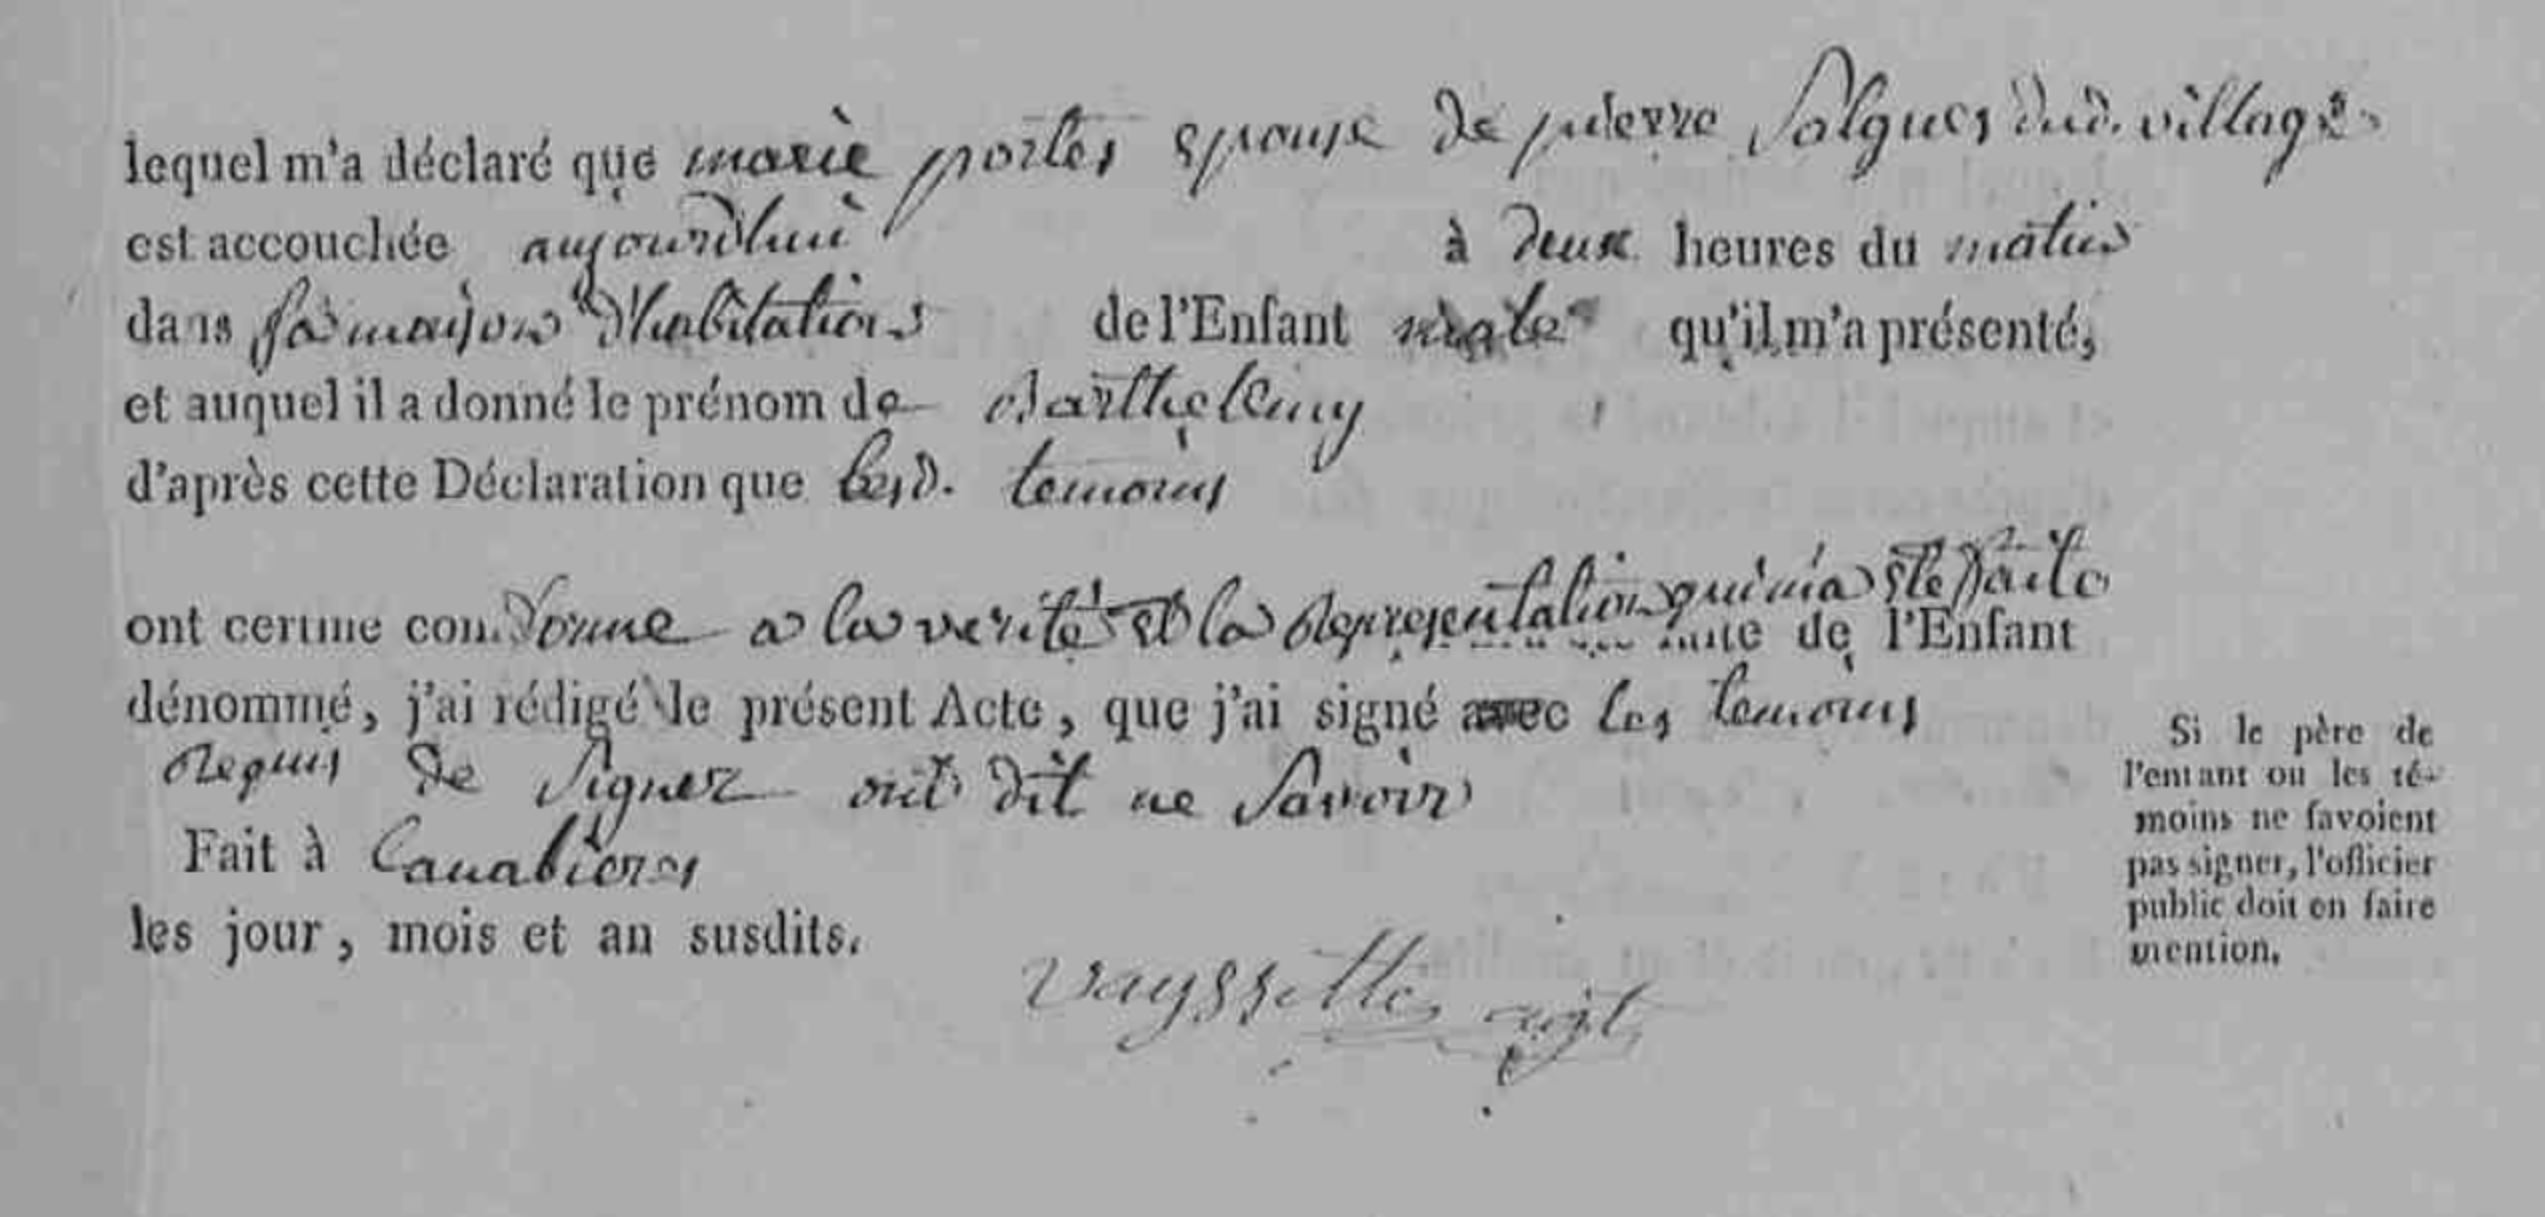 lequel m'a déclaré que marie portes epouse de pierre Salgues dud. village
est accouchée aujourdhui à deux heures du matin
dans sa maison d'habitation de l'Enfant male qu'il m'a présenté,
et auquel il a donné le prénom de Barthelemy
d'après cette Déclaration que lesd. temoins
ont certifié conforme a la verité et la Representation qui m'a été faite
de l'Enfant
dénommé, j'ai rédigé le présent Acte, que j'ai signé avec les temoins
Requis de Signer ont dit ne Savoir
Fait à Canabieres
les jour, mois et an susdits.
Vayssette
Si le père de
l'enfant ou les té-
moins ne savoient
pas signer, l'officier
public doit en faire
mention.